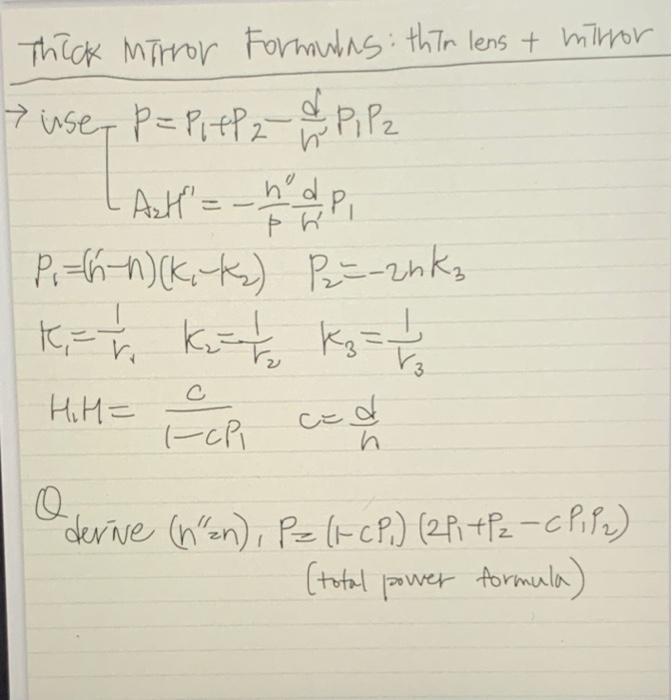 Thick Mirror Formulas: thin lens + mirror
→ use P = P₁+P₂ - d/n' P₁P₂
A₂H" = - n"/P d/n' P₁
P₁=(n'-n)(K₁-K₂) P₂=-2nK₃
K₁=1/r₁ K₂=1/r₂ K₃=1/r₃
H₁H = c/(1-cP₁) c= d/n
Q derive (n"=n), P= (1-cP₁) (2P₁+P₂-cP₁P₂)
(total power formula)